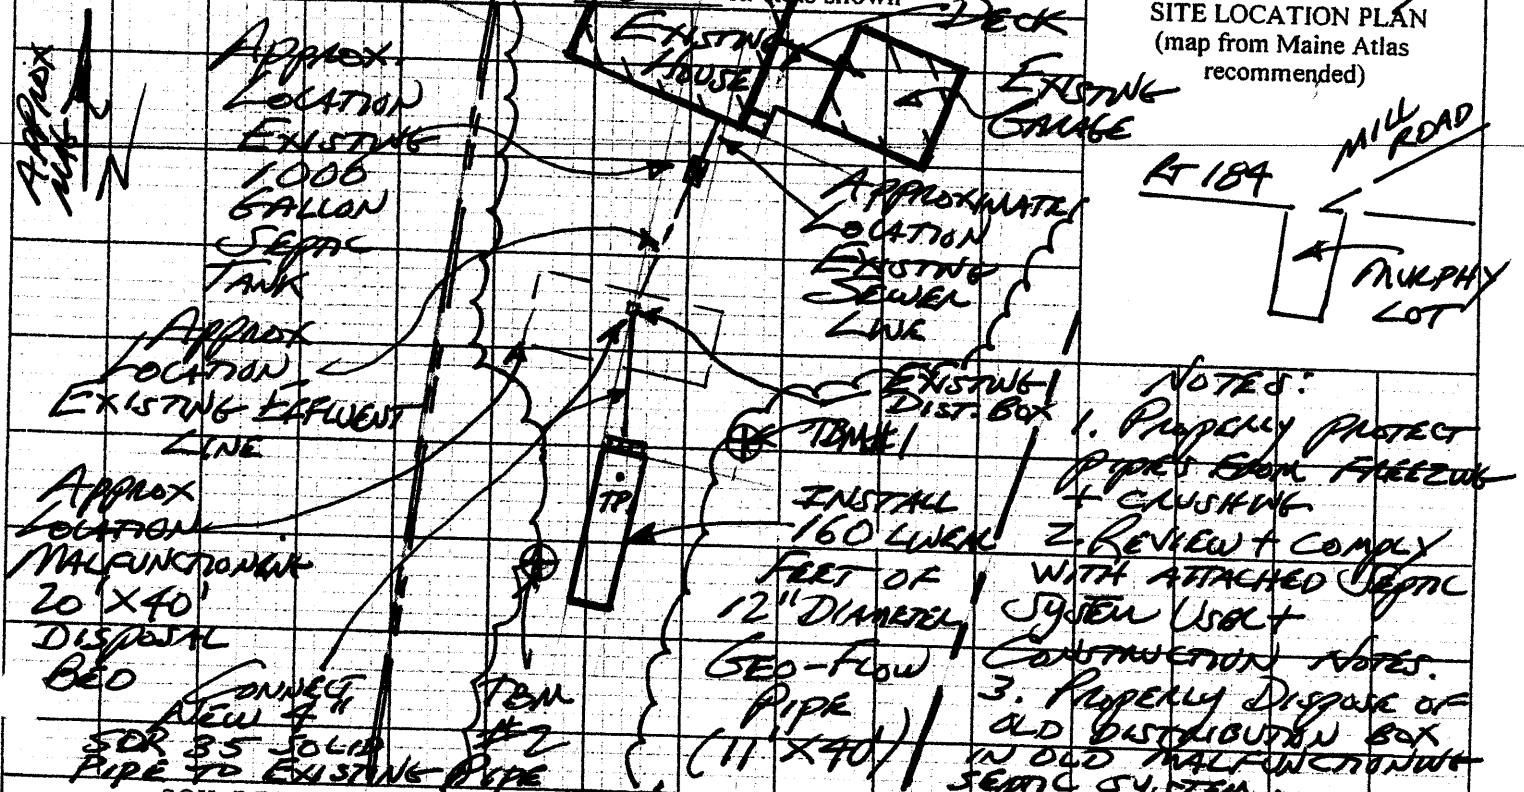 shown
SITE LOCATION PLAN
(map from Maine Atlas
recommended)
APPROX
MAG
N
APPROX
LOCATION
EXISTING
1000
GALLON
SEPTIC
TANK
EXISTING
HOUSE
DECK
EXISTING
GARAGE
MILL
ROAD
RT 184
MURPHY
LOT
APPROXIMATE
LOCATION
EXISTING
SEWER
LINE
APPROX
LOCATION
EXISTING EFFLUENT
LINE
EXISTING
DIST. BOX
TBM#1
APPROX
LOCATION
MALFUNCTIONING
20'X40'
DISPOSAL
BED
TP1
INSTALL
160 LINEAL
FEET OF
12" DIAMETER
GEO-FLOW
PIPE
(11'X40')
CONNECT
NEW 4"
SDR 35 SOLID
PIPE TO EXISTING PIPE
TBM
#2
NOTES:
1. PROPERLY PROTECT
PIPES FROM FREEZING
+ CRUSHING.
2. REVIEW + COMPLY
WITH ATTACHED SEPTIC
SYSTEM USE +
CONSTRUCTION NOTES.
3. PROPERLY DISPOSE OF
OLD DISTRIBUTION BOX
IN OLD MALFUNCTIONING
SEPTIC SYSTEM.